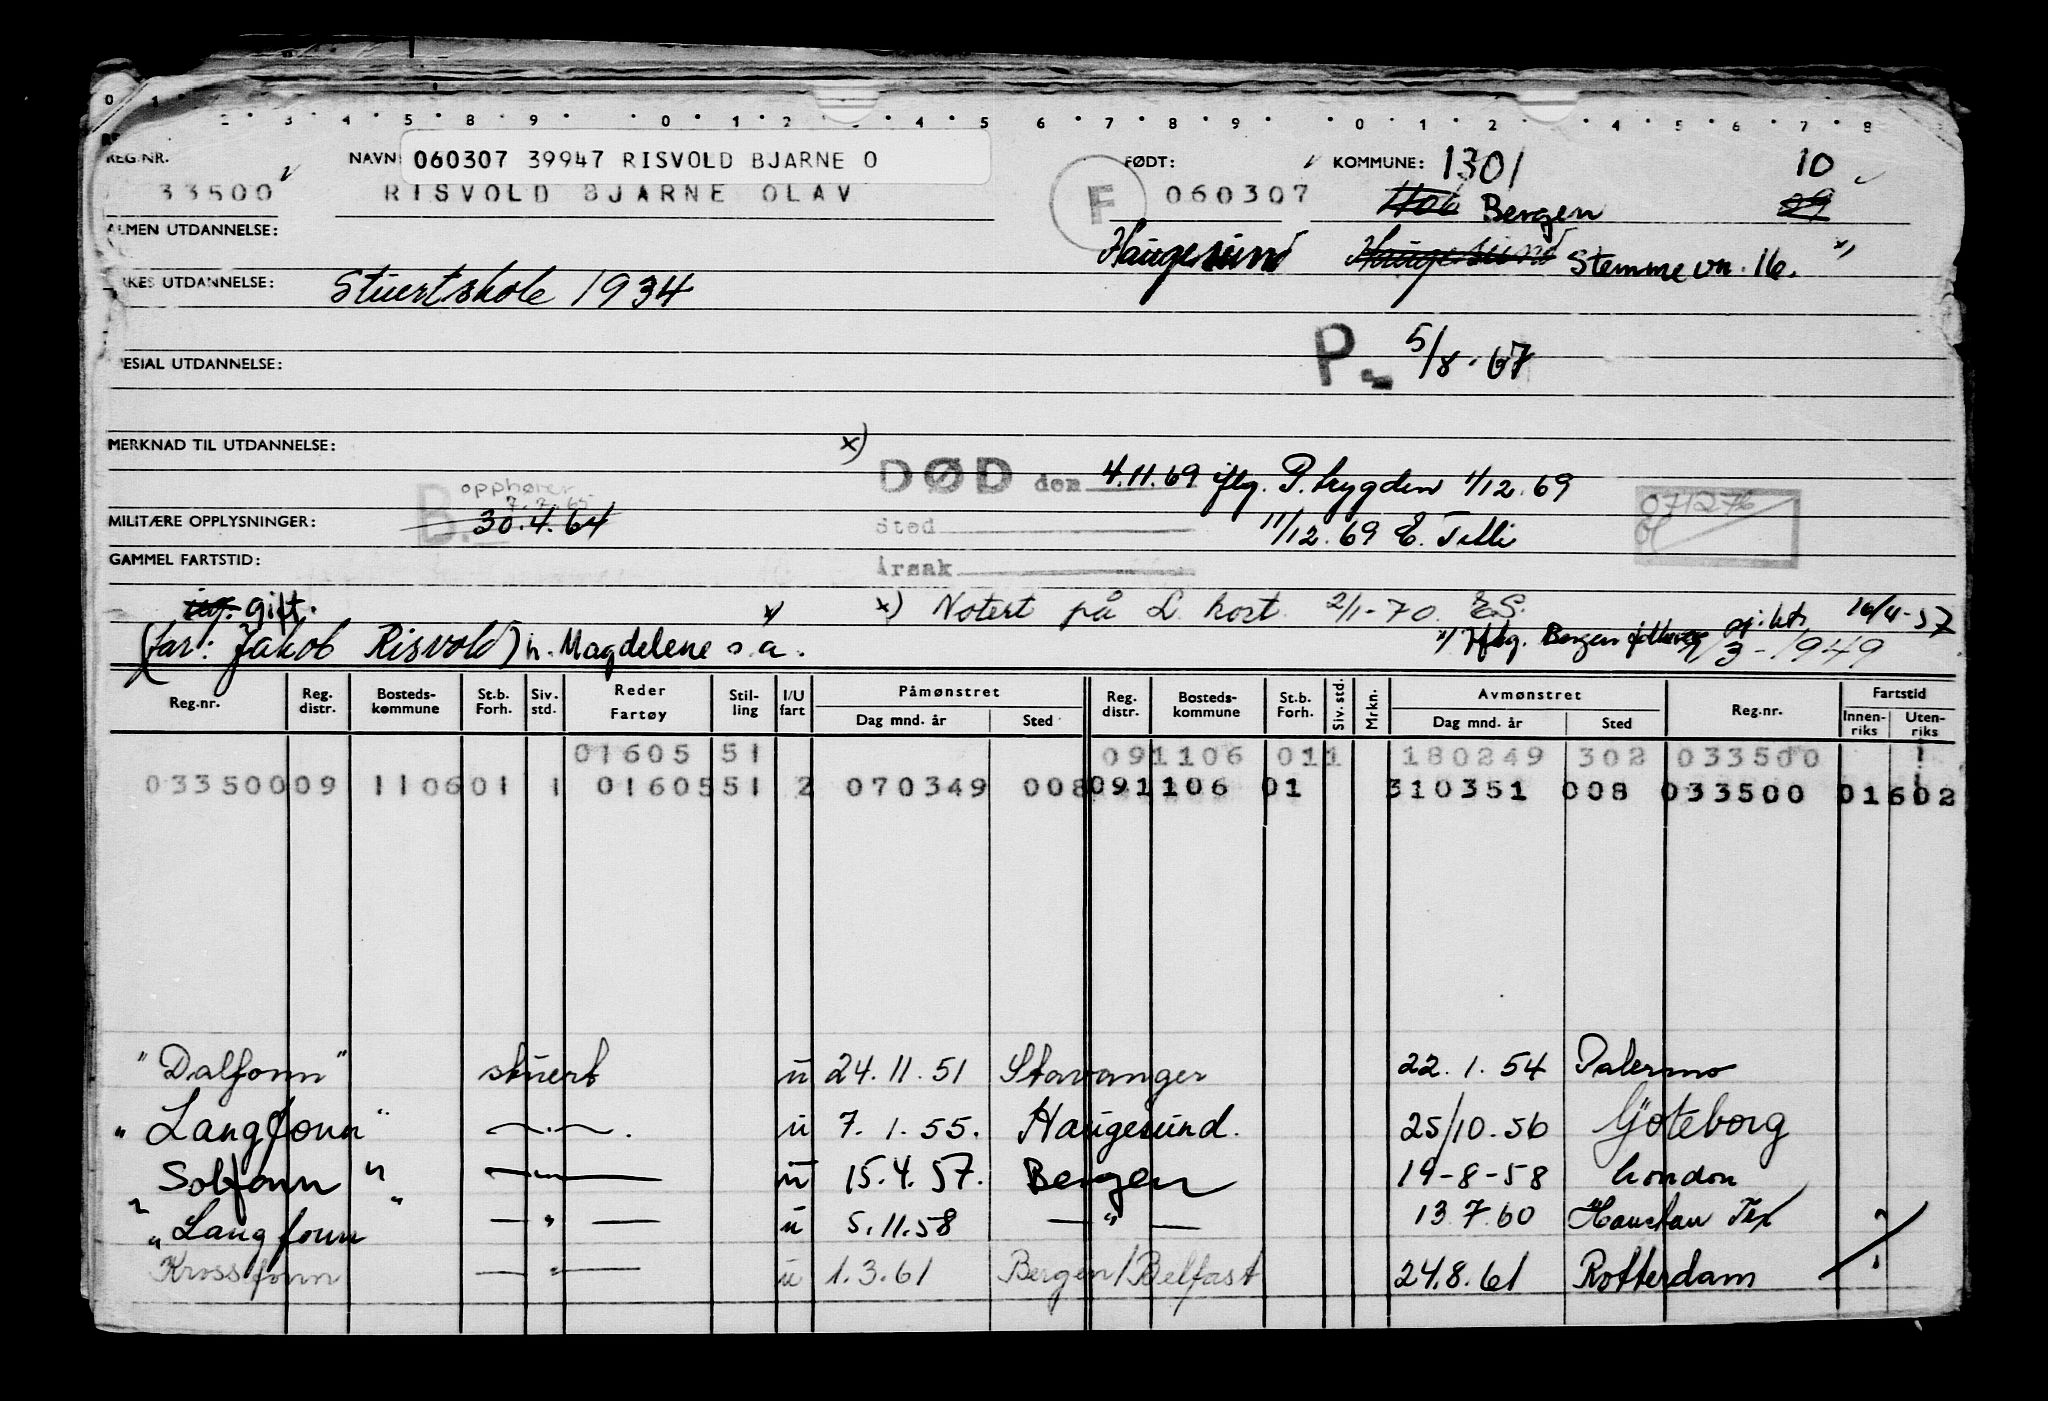 0 1 2 3 4 5 6 7 8 9 0 1 2 3 4 5 6 7 8 9 0 1 2 4 5 6 7 8
REG.NR. NAVN: 060307 39947 RISVOLD BJARNE O FØDT: KOMMUNE: 1301 10
33500 RISVOLD BJARNE OLAV F 060307 1106 Bergen 09
ALMEN UTDANNELSE: Haugesund Haugesund Stemmevn. 16. x)
RKES UTDANNELSE: Stuertskole 1934
P. 5/8-67
ESIAL UTDANNELSE:
MERKNAD TIL UTDANNELSE: x)
DØD den 4.11.69 iflg. P.trygden 1/12.69
B. opphører 7.2.65
MILITÆRE OPPLYSNINGER: 30.4.64 Sted 11/12.69 E. Telli 071276
GAMMEL FARTSTID: Årsak
ug. gift. x) x) Notert på L. kort. 2/1-70. E.S.
(far: Jakob Risvold) h. Magdelene s.a. x) Iflg. Bergen 16/4-57
3-1949
Reg.nr. Reg. distr. Bosteds-kommune St.b. Forh. Siv. std. Reder Fartøy Stil-ling I/U fart Påmønstret Reg. distr. Bosteds-kommune St.b. Forh. Siv. std. Mrkn. Avmønstret Reg.nr. Fartstid
Dag mnd. år Sted Dag mnd. år Sted Innen-riks Uten-riks
01605 51 091106 011 180249 302 033500
033500 09 1106 01 1 01605 51 2 070349 008 091106 01 310351 008 033500 01602
"Dalfonn" stuert u 24.11.51 Stavanger 22.1.54 Palermo
"Langfonn" -"- u 7.1.55. Haugesund. 25/10.56 Göteborg
"Solfonn" -"- u 15.4.57. Bergen 19-8-58 London
"Langfonn" -"- u 5.11.58 -"- 13.7.60 Houston Tex
Krossfonn -"- u 1.3.61 Bergen/Belfast 24.8.61 Rotterdam